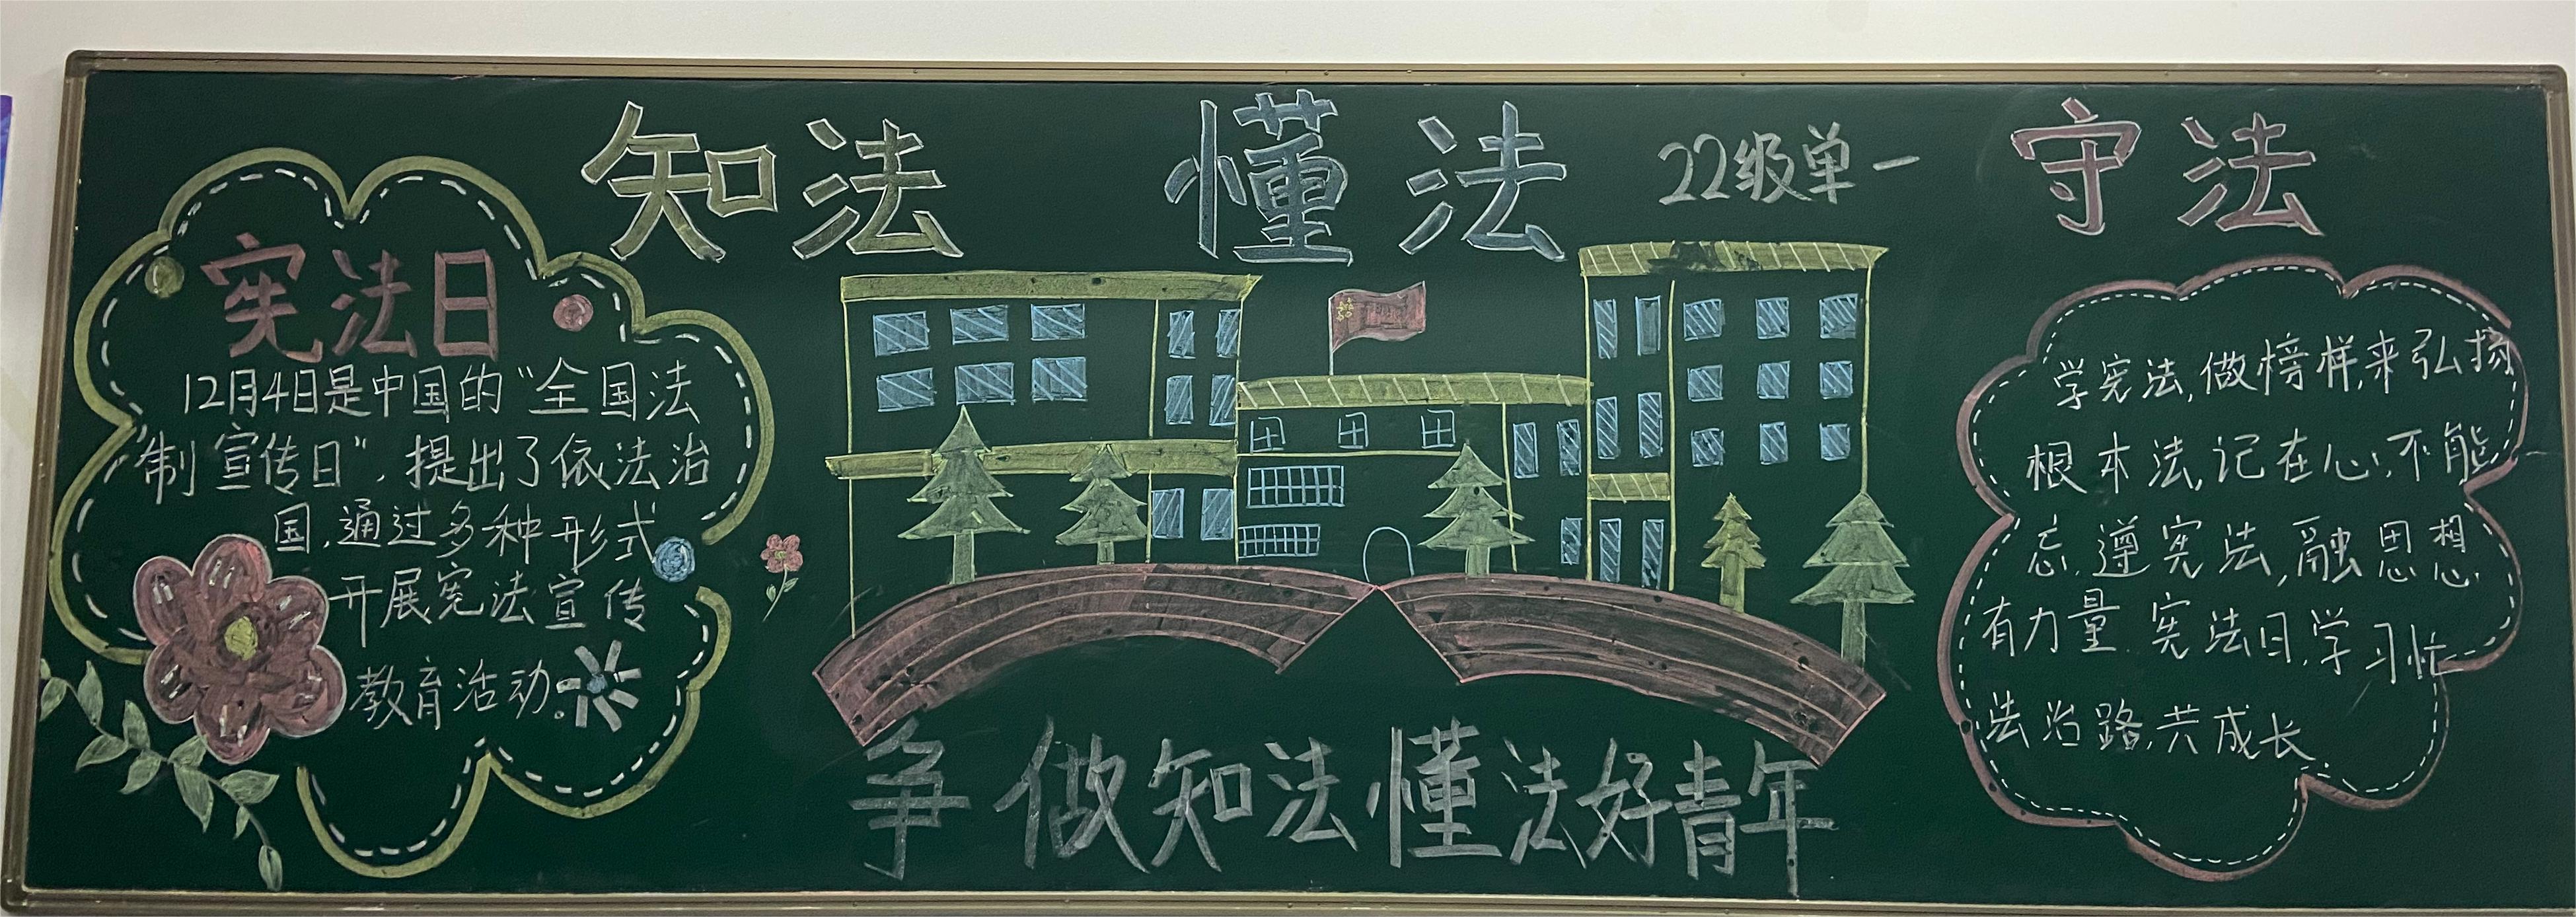 知法 懂法 22级单一 守法
宪法日
12月4日是中国的“全国法
制宣传日”，提出了依法治
国，通过多种形式
开展宪法宣传
教育活动。
学宪法，做榜样，来弘扬
根本法，记在心，不能
忘，遵宪法，融思想，
有力量，宪法日，学习忙
法治路，共成长。
争做知法懂法好青年